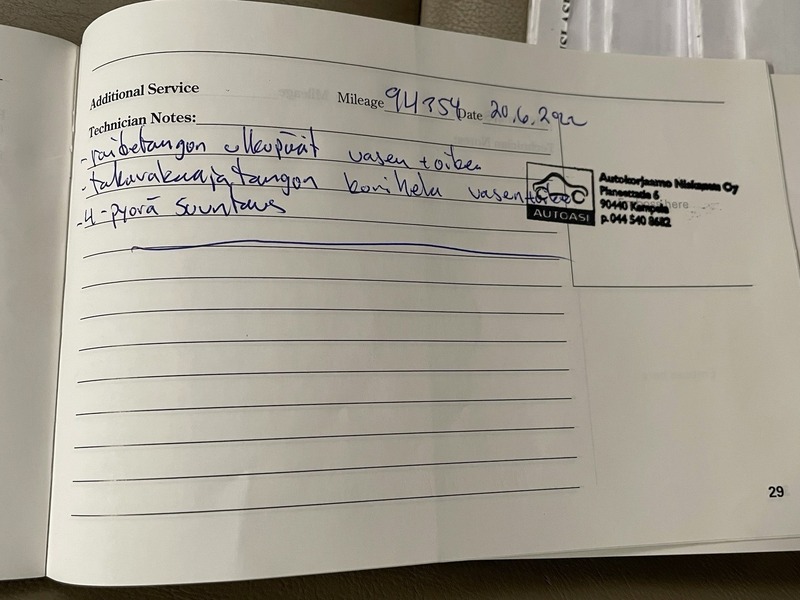 Additional Service
Mileage 94354 Date 20.6.2022
Technician Notes:
- raidetangon ulkopäät vasen + oikea
- takavakaajatangon korihela vasen + oikea
- 4-pyörä suuntaus
AUTOASI
Autokorjaamo Niskanen Oy
Planeetta 6
90440 Kempele
p. 044 540 8682
here
29